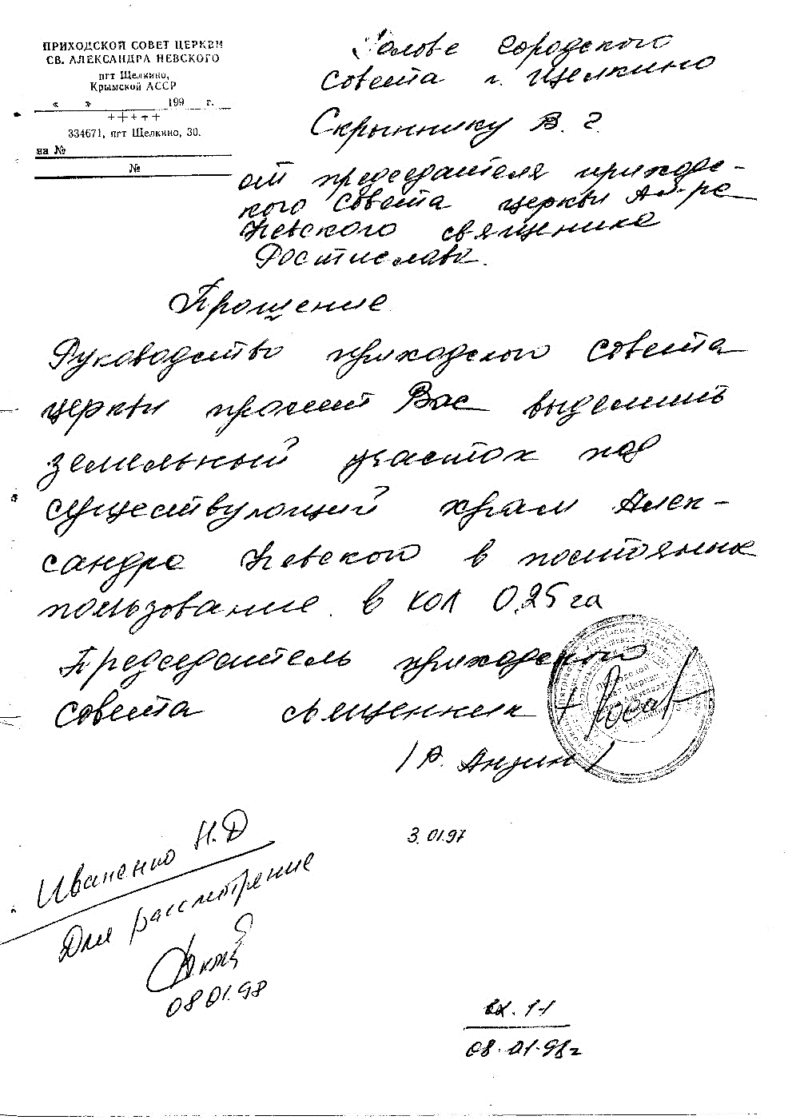 ПРИХОДСКОЙ СОВЕТ ЦЕРКВИ
СВ. АЛЕКСАНДРА НЕВСКОГО
пгт Щелкино,
Крымской АССР
« » 199 г.
+++++
334671, пгт Щелкино, 30.
на №
№
Голове городского
совета г. Щелкино
Скрыннику В. Г.
от председателя приходс-
кого совета церкви Ал-ра
Невского священика
Ростислава.
Прошение
Руководство приходского совета
церкви просит Вас выделить
земельный участок под
существующий храм Алек-
сандра Невского в постоянное
пользование. в кол 0,25 га
Председатель приходского
совета священник
/ Р. Анзин /
3.01.97
Иваненко Н.Д
Для рассмотрение
08 01.98
вх. 11
08.01.98г